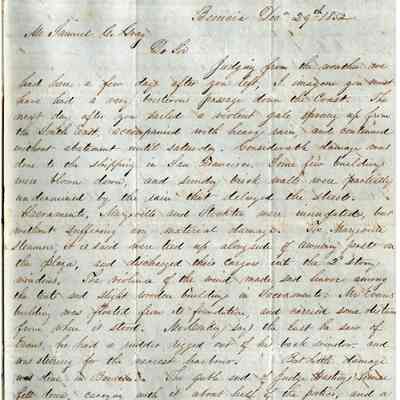 Benicia Decr 29th 1852
Mr Samuel C. Gray
Dr Sir
Judging from the weather we
had here a few days after you left, I imagine you must
have had a very boisterous passage down the Coast. The
next day after you sailed a violent gale sprung up from
the South East, accompanied with heavy rain, and continued
without abatement until Saturday. Considerable damage was
done to the shipping in San Francisco. Some few buildings
were blown down, and sundry brick walls were partially
undermined by the rain that deluged the streets.
Sacramento, Marysville and Stockton were inundated, but
without suffering any material damage. The Marysville
Steamers, it is said were tied up alongside of awning posts on
the plaza, and discharged their cargoes into the 2d story
windows. The violence of the wind made sad havoc among
the tents and slight wooden buildings in Sacramento. Mr Evans
building was floated from its foundation, and carried some distance
from where it stood. says the last he saw of
Evans, he had a rudder rigged out of his back window, and
was steering for the nearest harbour. But little damage
was done in Benicia. The gable end of Judge Hastings' House
fell down, carrying with it about half of the portico, and a